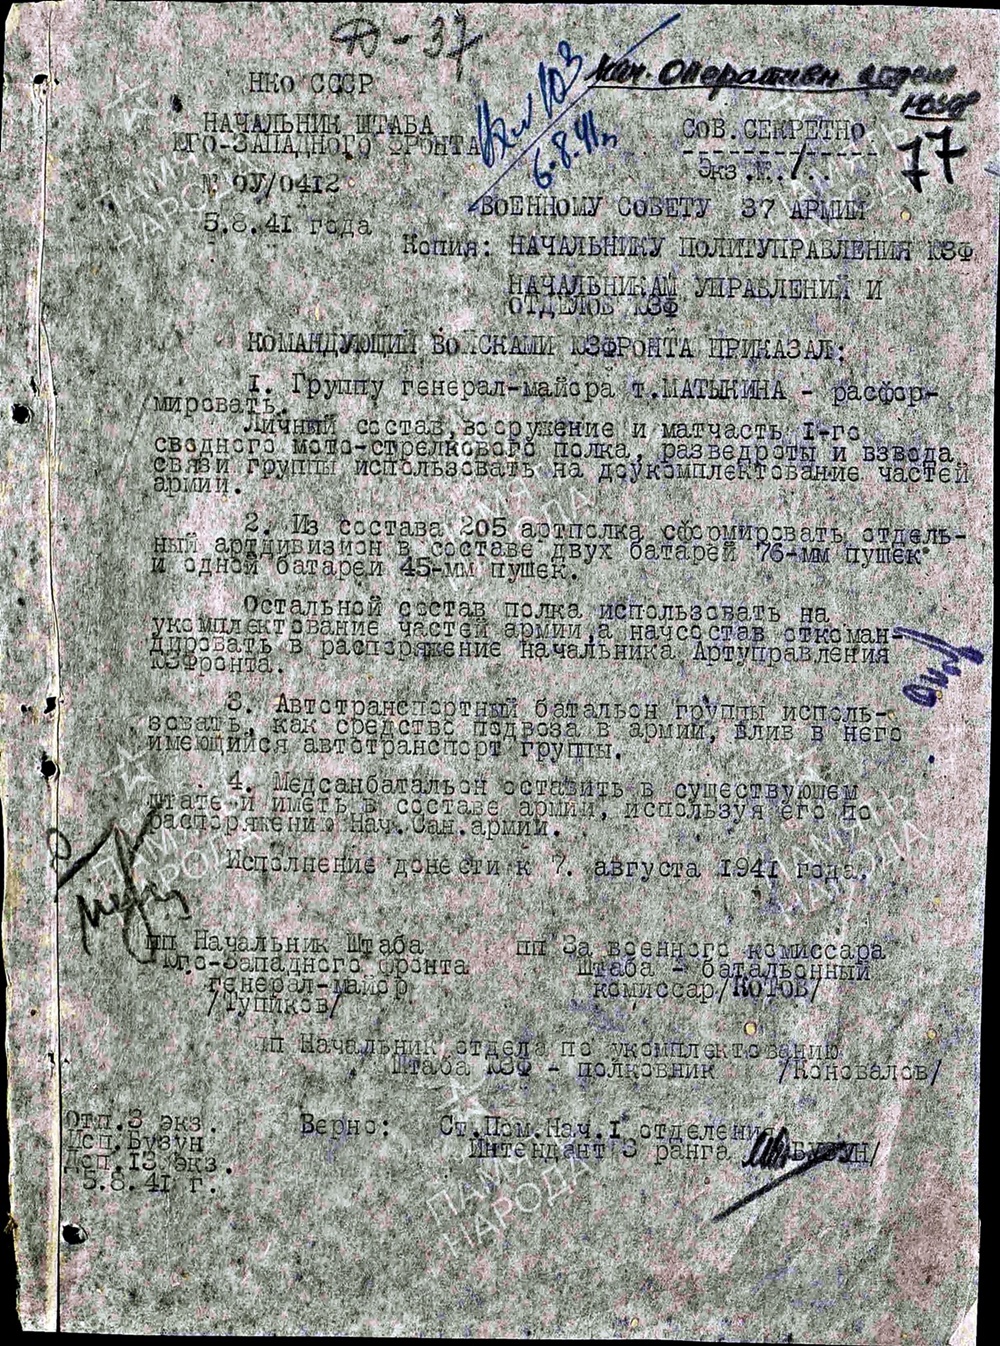 Д-37
НКО СССР
НАЧАЛЬНИК ШТАБА
ЮГО-ЗАПАДНОГО ФРОНТА
№ ОУ/0412
5.8.41 года
Вх № 103
6.8.41 г.
Нач. Оперативн отдела
ЮЗФ
77
СОВ.СЕКРЕТНО
Экз.№./...
ВОЕННОМУ СОВЕТУ 37 АРМИИ
Копия: НАЧАЛЬНИКУ ПОЛИТУПРАВЛЕНИЯ ЮЗФ
НАЧАЛЬНИКАМ УПРАВЛЕНИЙ И
ОТДЕЛОВ ЮЗФ
КОМАНДУЮЩИЙ ВОЙСКАМИ ЮЗФРОНТА ПРИКАЗАЛ:
I. Группу генерал-майора т.МАТЫКИНА - расфор-
мировать.
Личный состав,вооружение и матчасть I-го
сводного мото-стрелкового полка, разведроты и взвода
связи группы использовать на доукомплектование частей
армии.
2. Из состава 205 артполка сформировать отдель-
ный артдивизион в составе двух батарей 76-мм пушек
и одной батареи 45-мм пушек.
Остальной состав полка использовать на
укомплектование частей армии,а начсостав откоман-
дировать в распоряжение начальника Артуправления
ЮЗФронта.
3. Автотранспортный батальон группы исполь-
зовать, как средство подвоза в армии, влив в него
имеющийся автотранспорт группы.
4. Медсанбатальон оставить в существующем
штате и иметь в составе армии, используя его по
распоряжению Нач.Сан.армии.
Исполнение донести к 7. августа 1941 года.
пп Начальник Штаба
Юго-Западного фронта
генерал-майор
/Тупиков/
пп За военного комиссара
Штаба - батальонный
комиссар/КОТОВ/
пп Начальник отдела по укомплектованию
Штаба ЮЗФ - полковник /Коновалов/
Отп.3 экз.
Исп.Бузун
Доп.13 экз.
5.8.41 г.
Верно: Ст.Пом.Нач.I отделения
Интендант 3 ранга /БУЗУН/
ПАМЯТЬ
НАРОДА
ПАМЯТЬ
НАРОДА
ПАМЯТЬ
НАРОДА
ПАМЯТЬ
НАРОДА
ПАМЯТЬ
НАРОДА
ПАМЯТЬ
НАРОДА